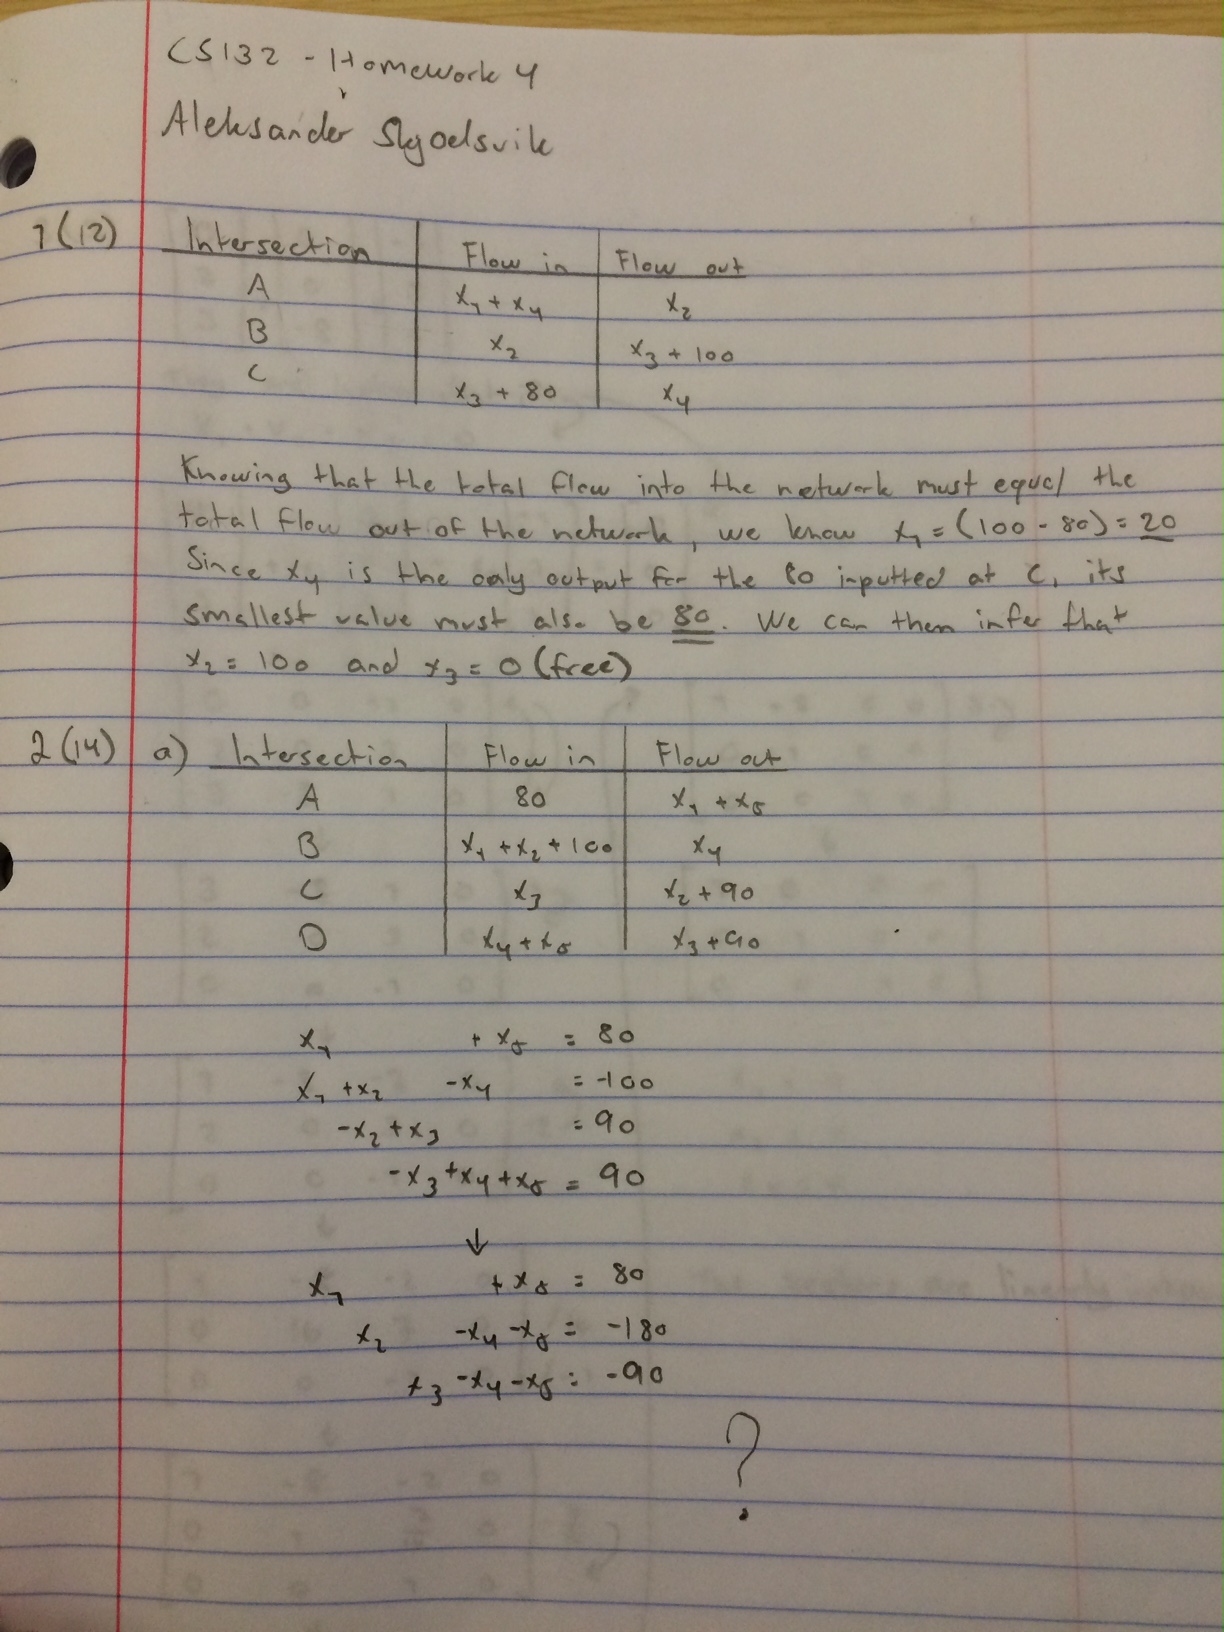 CS132 - Homework 4
Aleksander Skjoelsvik
1(12) Intersection Flow in Flow out
A x₁ + x₄ x₂
B x₂ x₃ + 100
C x₃ + 80 x₄
Knowing that the total flow into the network must equal the
total flow out of the network, we know x₁ = (100 - 80) = 20
Since x₄ is the only output for the 80 inputted at C, its
smallest value must also be 80. We can then infer that
x₂ = 100 and x₃ = 0 (free)
2(14) a) Intersection Flow in Flow out
A 80 x₁ + x₅
B x₁ + x₂ + 100 x₄
C x₃ x₂ + 90
D x₄ + x₅ x₃ + 90
x₁ + x₅ = 80
x₁ + x₂ - x₄ = -100
-x₂ + x₃ = 90
-x₃ + x₄ + x₅ = 90
↓
x₁ + x₅ = 80
x₂ -x₄ -x₅ = -180
x₃ -x₄ -x₅ = -90
?